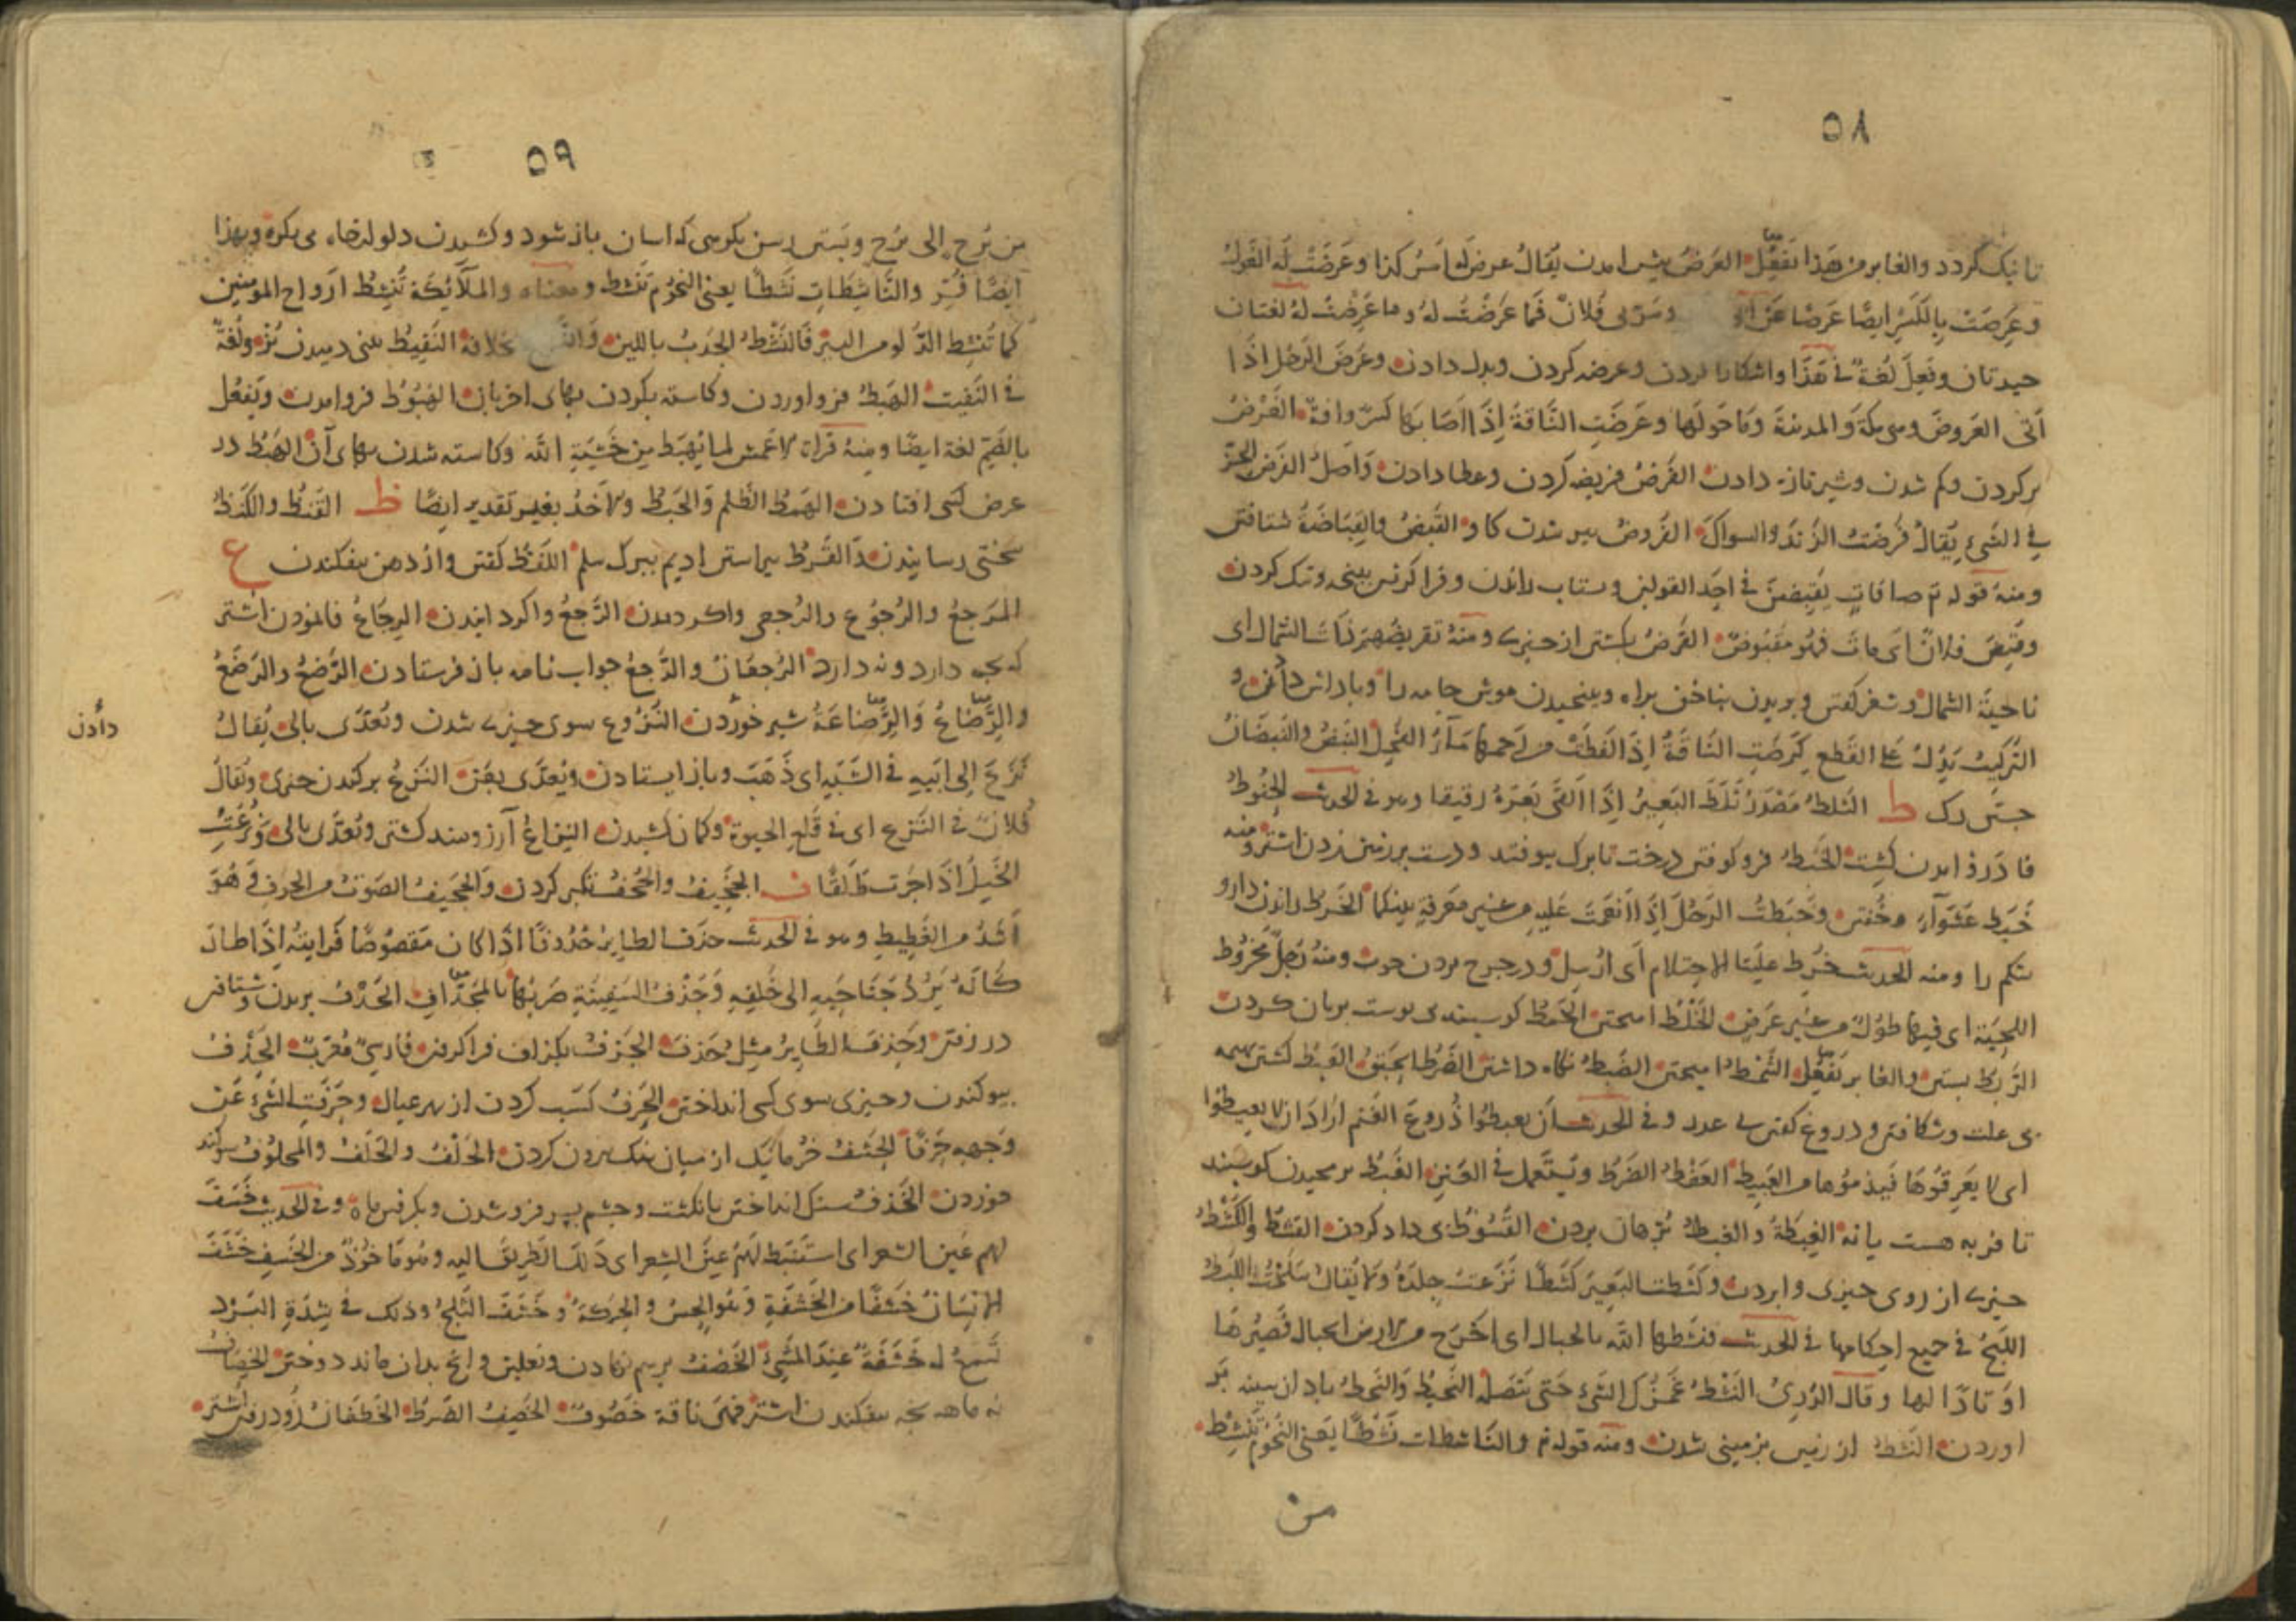 ٥٨
تا نیک کردد والغابر من هذا تفعل العرض پیش امدن یقال عرض له امر کذا وعرضت له الغول
وعرضت بالکسر ایضا عرضا عن ومر بی فلان فما عرضت له وما عرضت له لغتان
جیدتان وفعل لغة فی هذا واشکارا کردن وعرضه کردن وبدل دادن وعرض الرجل اذا
اتی العروض وهی مکة والمدینة وما حولها وعرضت الناقة اذا اصابها کسر وافة الغرض
پر کردن وکم شدن وشیر تازه دادن الفرض فریضه کردن وعطا دادن واصل الفرض الحز
فی الشیء یقال فرضت الزند والسواک الفروض پیر شدن کاو القبض والقباضة شتافتن
ومنه قوله تع صافات یقبضن فی احد القولین وستاب راندن وفرا کرفتن بپنجه وتنک کردن
وقبض فلان ای مات فهو مقبوض القرض بکشتن از چیزی ومنه تقرضهم ذات الشمال ای
ناحیة الشمال وشعر کفتن وبریدن بناخن براه وپنجیدن موش جامه را وپاداش دادن و
الترکیب یدل علی القطع النبض والنبضان
جستن رک ط الثلط مصدر ثلط البعیر اذا القی بعره رقیقا وهو فی الحدیث الحنوط
فا درو امدن کشت الخبط فرو کوفتن درخت تا برک بیوفتد ودست بر زمین زدن اشتر ومنه
خبط عشواء وخفتن وخبطت الرجل اذا انعمت علیه من غیر معرفة بینکما الخرط راندن دارو
شکم را ومنه الحدیث خرط علینا الاحتلام ای ارسل ودر چرخ بردن چوب ومنه رجل مخروط
اللحیة ای فیها طول من غیر عرض الخلط امیختن الخمط کوسپندی بوست بریان کردن
الربط بستن والغابر تفعل الشمط امیختن الضبط نکاه داشتن الضرط الحبق العبط کشتن بهیمه
بی علت وشکافتن ودروغ کفتن بی عدد وفی الحدیث ان یعبطوا ضروع الغنم اراد ان لا یعبطوا
ای لا یعرقوها فیدموها من العبیط العفط الضرط ویستعمل فی العنز الغبط برمجیدن کوسپند
تا فربه هست یا نه الغبطة والغبط بژهان بردن القسوط بی داد کردن القشط والکشط
چیزی از روی چیزی وا بردن وکشطت البعیر کشطا نزعت جلده ولا یقال سلخت اللبط
اللبج فی جمیع احکامها فی الحدیث فنشطها الله بالجبال ای اخرج من الارض الجبال فصیرها
اوتادا لها وقال النشط غمزک الشیء حتی النحیط والنحط باد از سینه بر
اوردن النشط از زمین بزمینی شدن ومنه قوله تع والناشطات نشطا یعنی النجوم تنشط
من
٥٩
من برج الی برج وبستن رسن بکرهی که اسان باز شود وکشیدن دلو از چاه بی بکره وبهذا
ایضا فسر والناشطات نشطا یعنی النجوم تنشط ومعناه والملائکة تنشط ارواح المؤمنین
کما تنشط الدلو من البئر فالنشط الجذب باللین خلافه النفیط بینی دمیدن بز ولغة
فی النفیت الهبط فرو اوردن وکاسته بکردن بهای اخریان الهبوط فرو امدن وتفعل
بالضم لغة ایضا ومنه قراة الاعمش لما یهبط من خشیة الله وکاسته شدن بهای آن الهبط در
عرض کسی افتادن الهمط الظلم والخبط والاخذ بغیر تقدیر ایضا ظ القنظ والکنظ
سختی رسانیدن القرظ پیراستن ادیم ببرک سلم اللفظ کفتن واز دهن بیفکندن ع
المرجع والرجوع والرجعی وا کردیدن الرجع وا کردانیدن الرجاع فانمودن اشتر
که بچه دارد ونه دارد الرجعان والرجع جواب نامه باز فرستادن الرضع والرضع
والرضاع والرضاعة شیر خوردن النزوع سوی چیزی شدن وتعدی بالی یقال
دادن
نزع الی ابیه فی الشبه ای ذهب وباز ایستادن ویعدی بعن النزع برکندن چیزی ویقال
فلان فی النزع ای فی قلع الحیوة وکمان کشیدن النزاع آرزومند کشتن وتعدی بالی ونزعت
الخیل اذا جرت طلقا ف الجخیف والجخف تکبر کردن والجخیف الصوت من الجوف وهو
اشد من الغطیط وهو فی الحدیث جدف الطایر جدوفا اذا کان مقصوصا فرایته اذا طار
کانه یرد جناحیه الی خلفه وجذف السفینة ضربها بالمجداف الجذف بریدن وشتافتن
در رفتن وجذف الطایر مثل جدف الجزف بکزاف فرا کرفتن فارسی معرب الحذف
بیوکندن وچیزی سوی کسی انداختن الحرف کسب کردن از بهر عیال وحرفت الشیء عن
وجهه حرفا الحشف خرما نیک از میان بد بیرون کردن الحلف والحلف والمحلوف سوکند
خوردن الخذف سنک انداختن بانکشت وچشم بسر فرو شدن وبکرفتن ماه وفی الحدیث خسف
لهم عین الشعر ای استنبط لهم عین الشعر ای ذلل الطریق الیه وهو ماخوذ من الخسف خشف
الانسان خشفا من الخشفة وهو الحس والحرکة وخشف الثلج وذلک فی شدة البرد
تسمع له خشفة عند المشی الخصف برهم نهادن ونعلین وانچ بدان ماند دوختن الخصاف
نه ماهه بچه بیفکندن اشتر فهی ناقة خصوف الخصف الضرط الخطفان زود رفتن اشتر